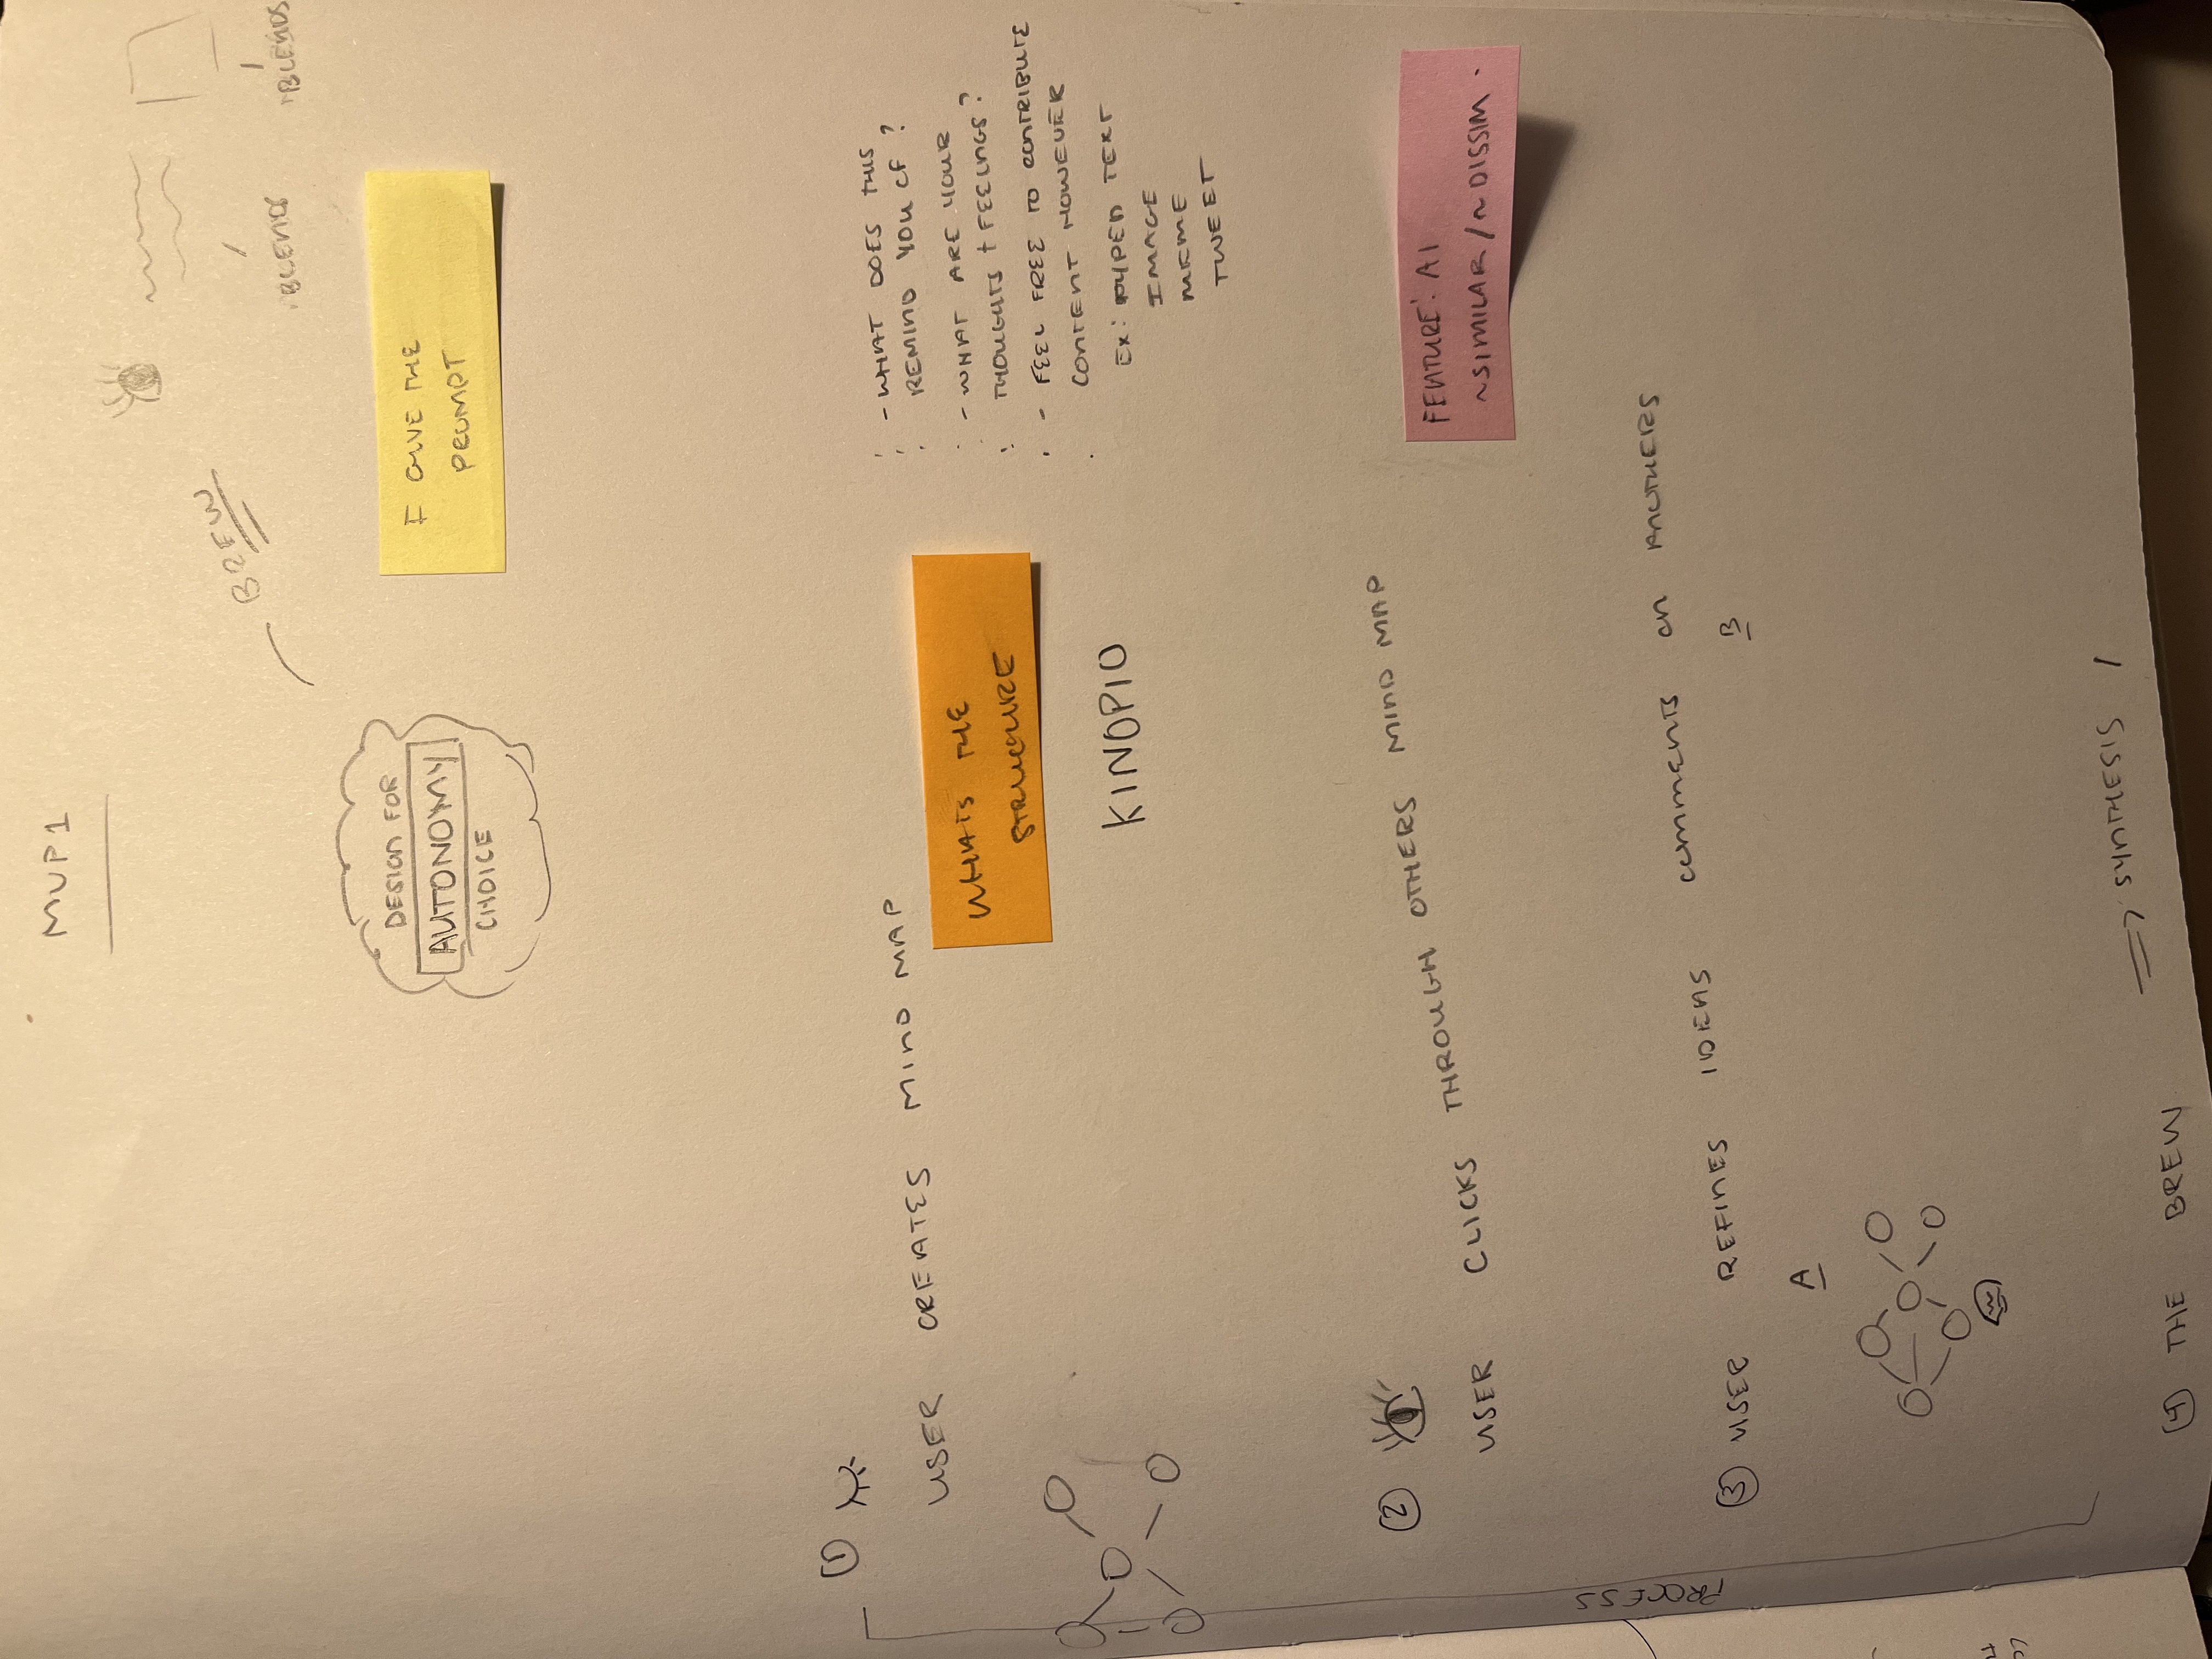 MVP1
BREW
BLENDS
BLENDS
DESIGN FOR
AUTONOMY
CHOICE
I GIVE THE
PROMPT
1
USER CREATES MIND MAP
WHATS THE
STRUCTURE
KINOPIO
- WHAT DOES THIS
REMIND YOU OF?
- WHAT ARE YOUR
THOUGHTS + FEELINGS?
- FEEL FREE TO CONTRIBUTE
CONTENT HOWEVER
EX: TYPED TEXT
IMAGE
MEME
TWEET
2
USER CLICKS THROUGH OTHERS MIND MAP
FEATURE: AI
~SIMILAR / ~DISSIM.
PROCESS
3 USER REFINES IDEAS COMMENTS ON ANOTHERS
A
B
=> SYNTHESIS /
(4) THE BREW